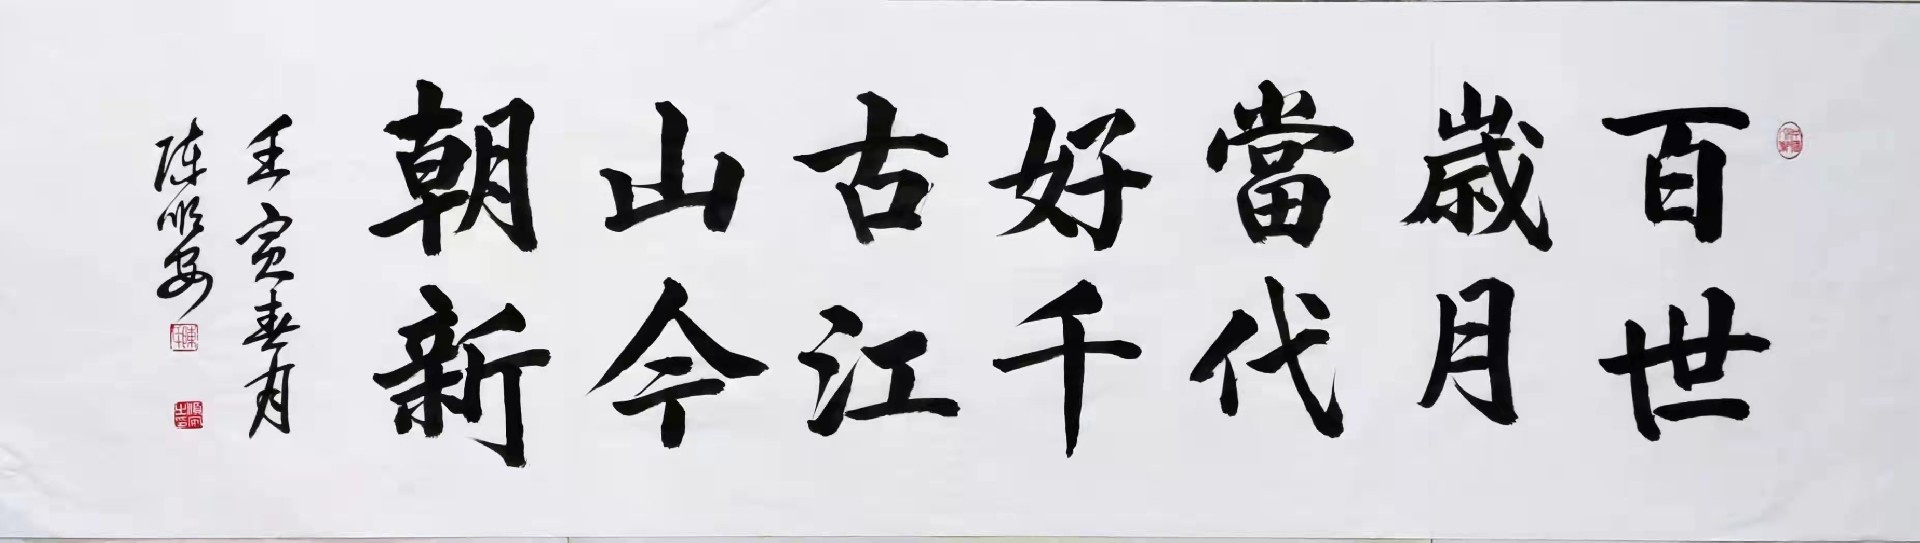 百世
歲月
當代
好千
古江
山今
朝新
壬寅春月
陈顺安